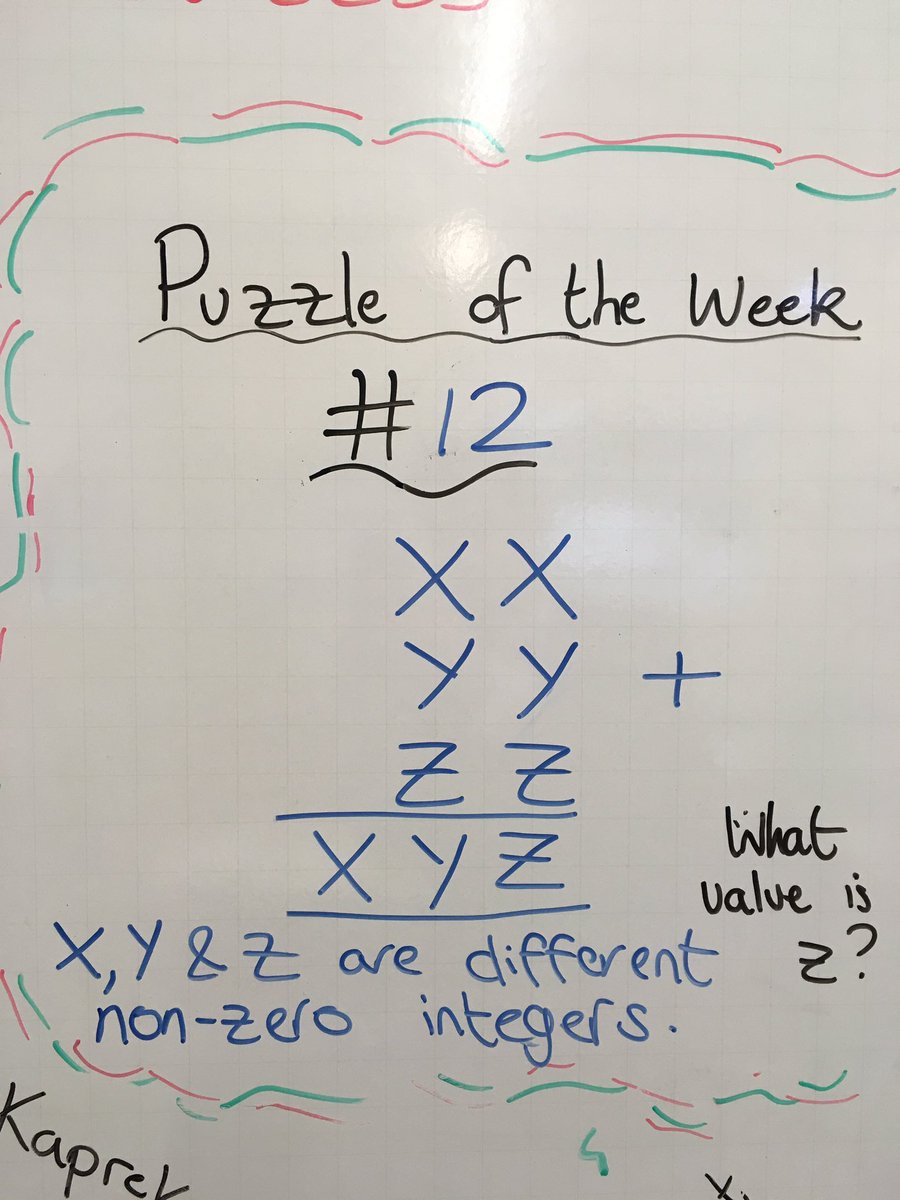 Puzzle of the Week
#12
X X
Y Y +
Z Z
X Y Z
What
value is
Z?
X, Y & Z are different
non-zero integers.